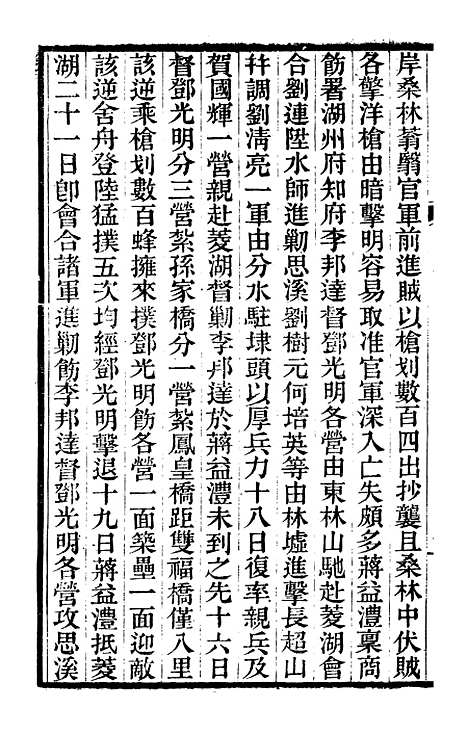 岸桑林蓊翳官軍前進賊以槍划數百四出抄襲且桑林中伏賊
各擎洋槍由暗擊明容易取准官軍深入亡失頗多蔣益澧稟商
飭署湖州府知府李邦達督鄧光明各營由東林山馳赴菱湖會
合劉連陞水師進勦思溪劉樹元何培英等由林墟進擊長超山
幷調劉淸亮一軍由分水駐埭頭以厚兵力十八日復率親兵及
賀國輝一營親赴菱湖督勦李邦達於蔣益澧未到之先十六日
督鄧光明分三營紮孫家橋分一營紮鳳皇橋距雙福橋僅八里
該逆乘槍划數百蜂擁來撲鄧光明飭各營一面築壘一面迎敵
該逆舍舟登陸猛撲五次均經鄧光明擊退十九日蔣益澧抵菱
湖二十一日卽會合諸軍進勦飭李邦達督鄧光明各營攻思溪